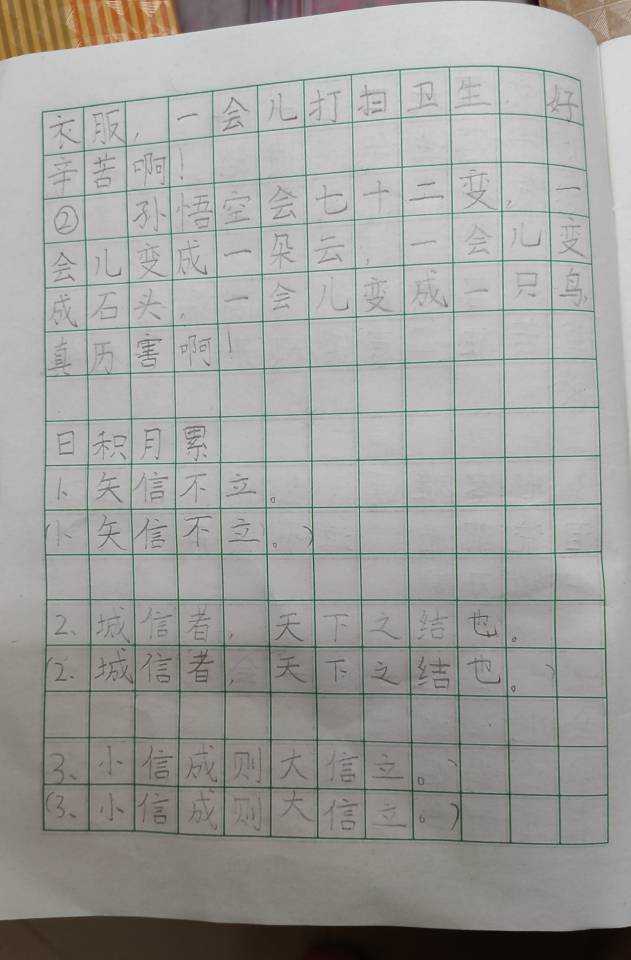 衣服，一会儿打扫卫生，好
辛苦啊！
② 孙悟空会七十二变，一
会儿变成一朵云，一会儿变
成石头，一会儿变成一只鸟，
真历害啊！
日积月累
1、矢信不立。
(1、矢信不立。)
2、城信者，天下之结也。
(2、城信者，天下之结也。)
3、小信成则大信立。
(3、小信成则大信立。)